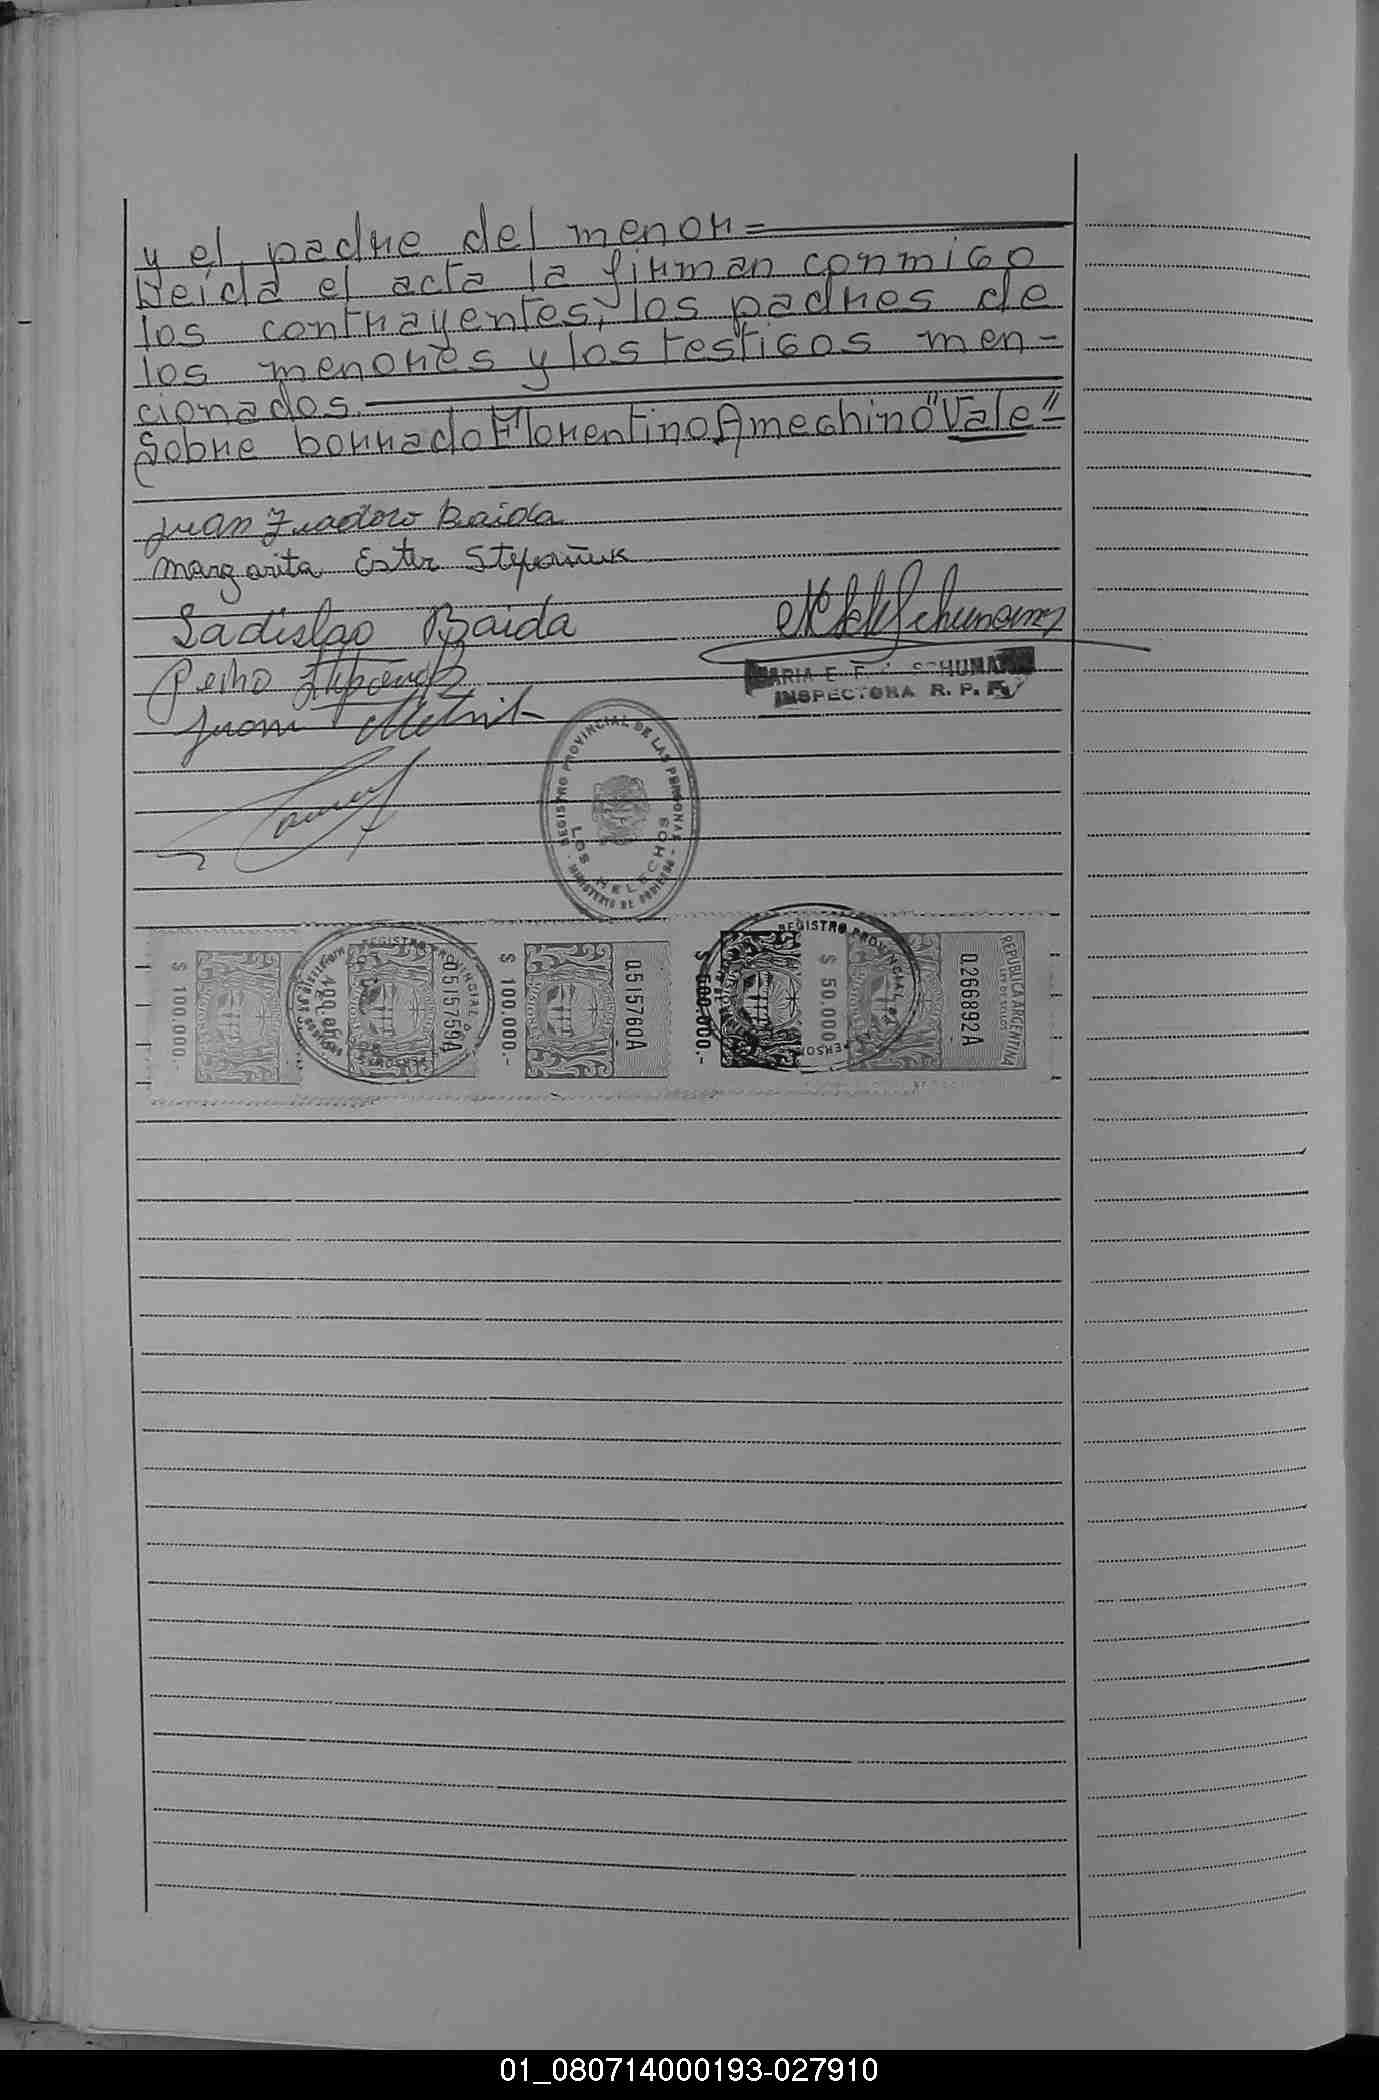 y el padre del menor =
Leída el acta la firman conmigo
los contrayentes, los padres de
los menores y los testigos men-
cionados.
Sobre borrado "Florentino Ameghino" Vale"
Juan Isidoro Baida
Margarita Ester
Ladislao Baida
Pedro
Juan
MARIA E. F. SCHUMANN
INSPECTORA R. P. P.
REGISTRO PROVINCIAL DE LAS PERSONAS
LOS HELECHOS
MINISTERIO DE GOBIERNO
$ 100.000.-
0515759A
$ 100.000.-
0515760A
$ 500.000.-
$ 50.000
0266892A
REPUBLICA ARGENTINA
REGISTRO PROVINCIAL
01_080714000193-027910